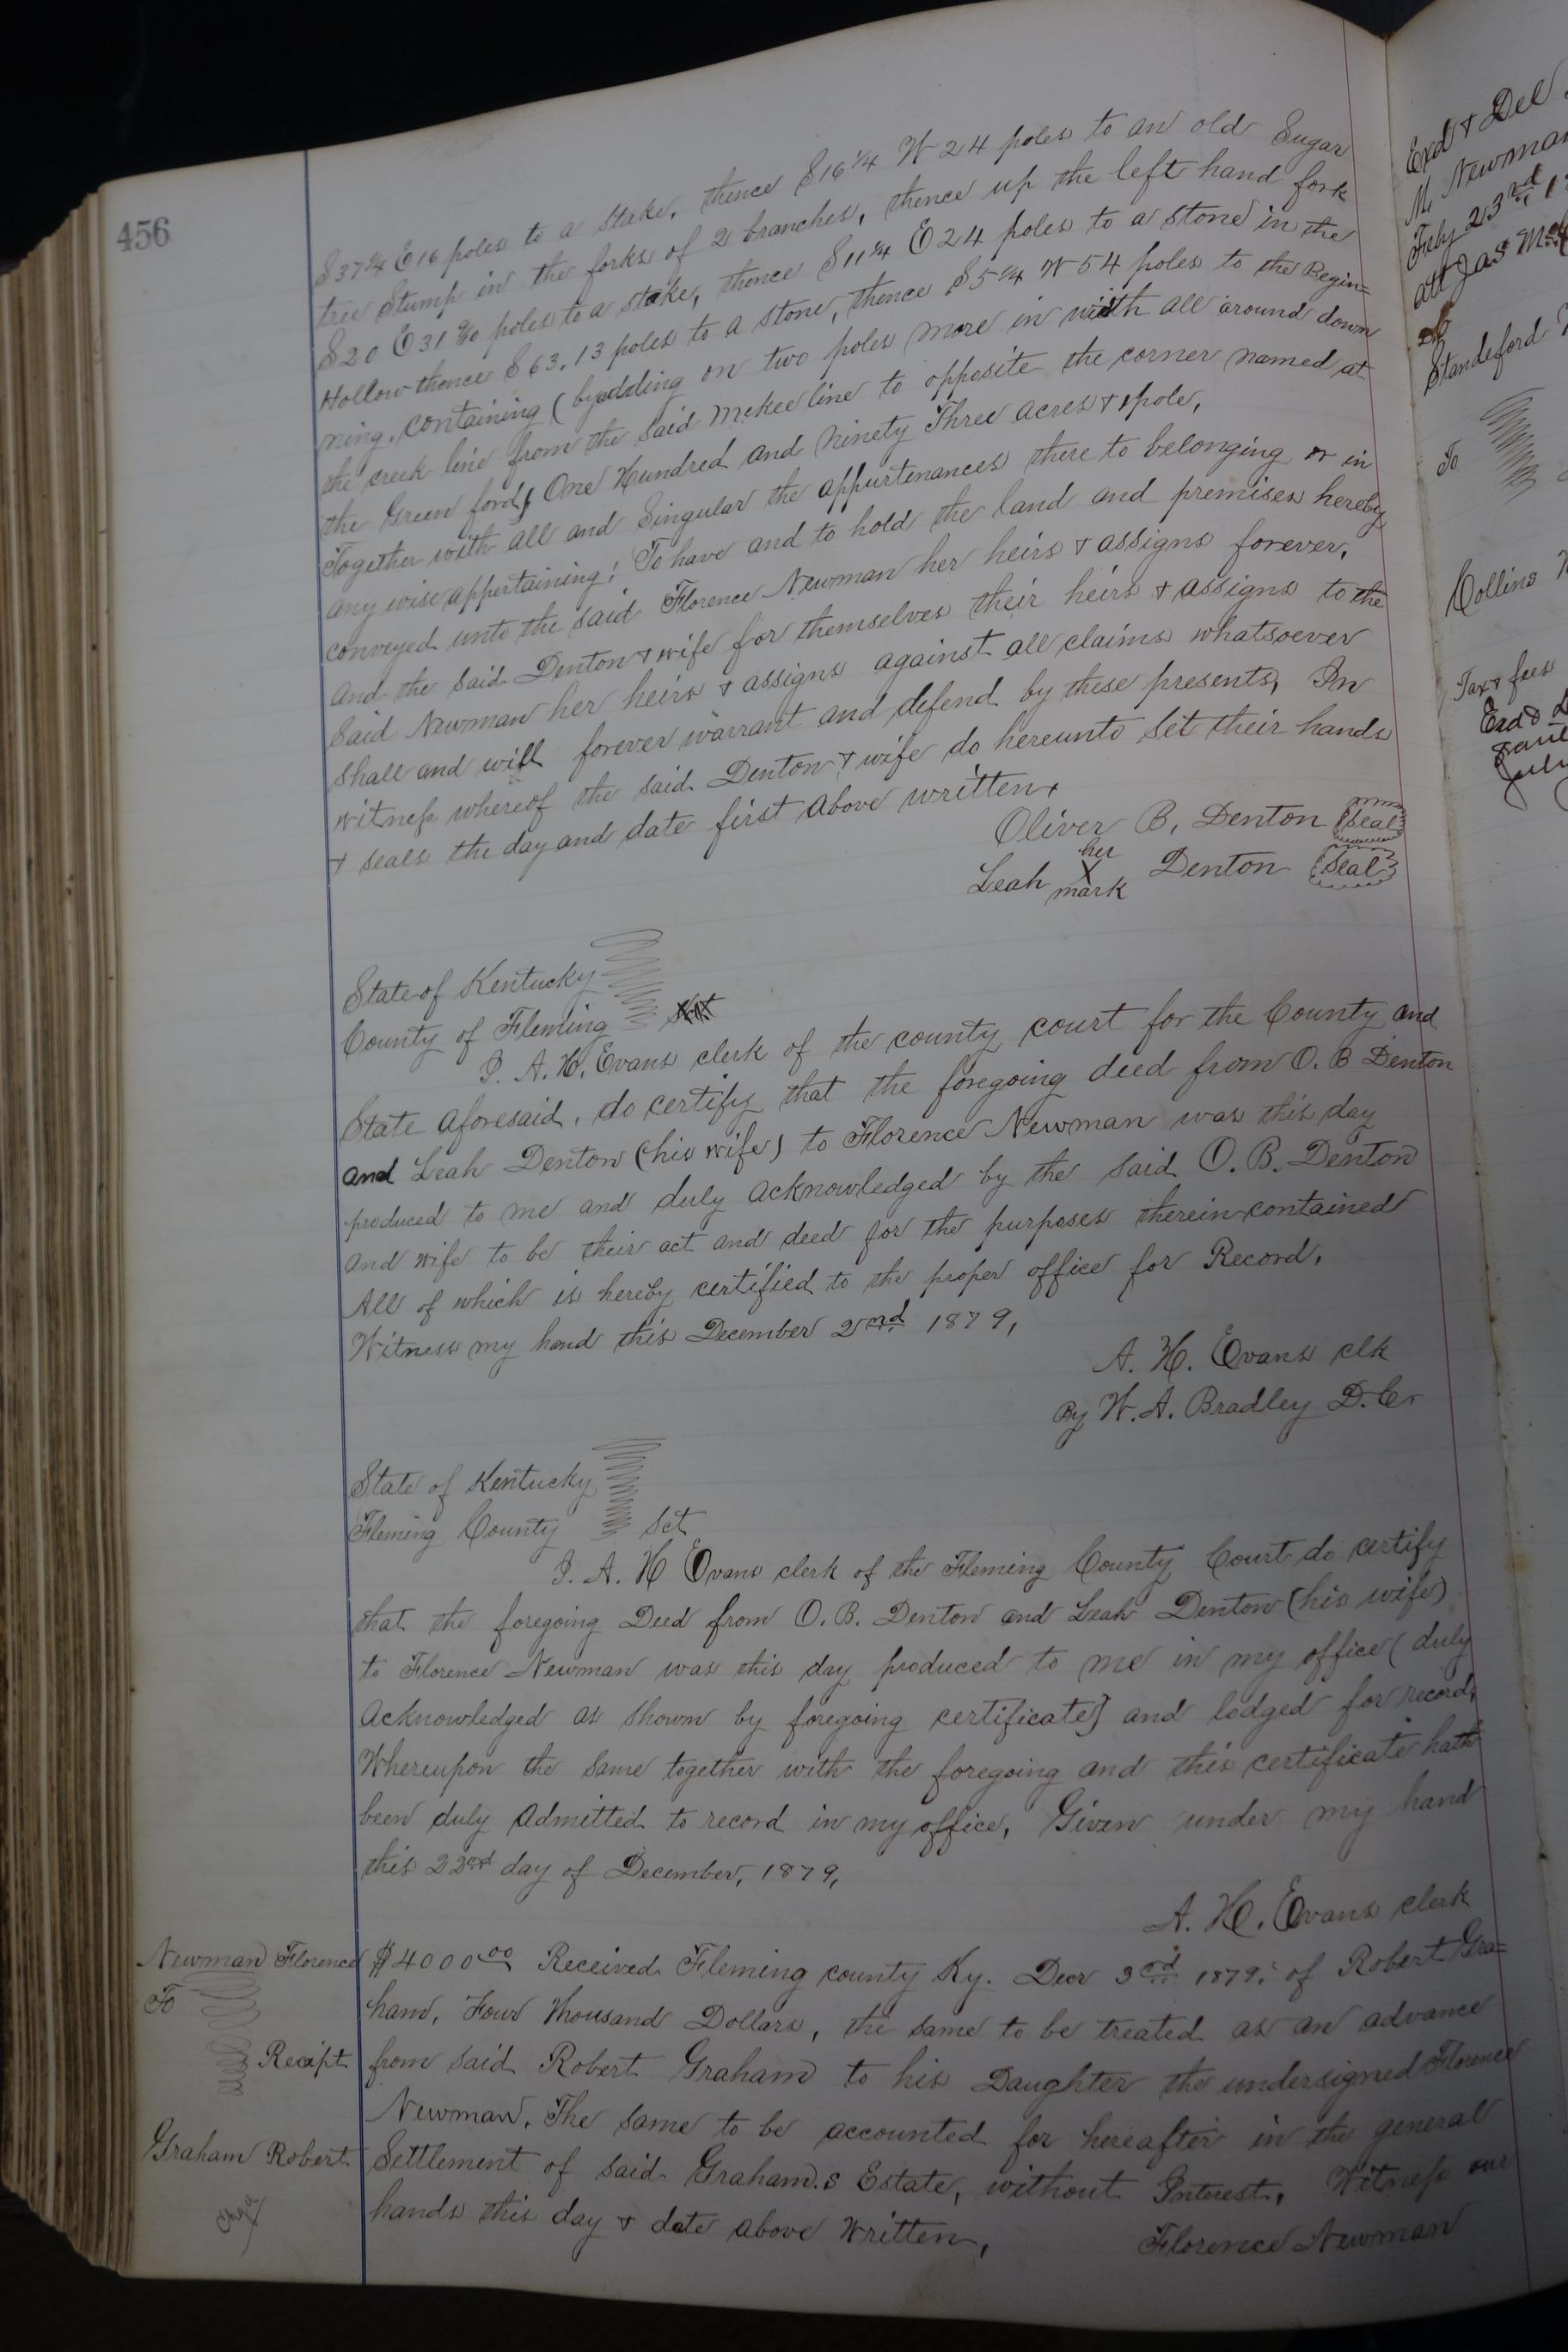 456
S 37 1/4 E 16 poles to a Stake, thence S 16 1/4 W 24 poles to an old Sugar
tree Stump in the forks of 2 branches, thence up the left hand fork
S 20 E 31 poles to a stake, thence S 11 1/4 E 24 poles to a stone in the
Hollow thence S 63, 13 poles to a stone, thence S 5 1/4 W 54 poles to the Begin=
ning, containing (by adding on two poles more in width all around down
the creek line from the said McKee line to opposite the corner named at
the Green ford) One Hundred and Ninety Three acres & 1 pole,
Together with all and Singular the appurtenances there to belonging or in
any wise appertaining; To have and to hold the land and premises hereby
conveyed unto the said Florence Newman her heirs & assigns forever,
and the said Denton & wife for themselves their heirs & assigns to the
Said Newman her heirs & assigns against all claims whatsoever
shall and will forever warrant and defend by these presents, In
witness whereof the said Denton & wife do hereunto set their hands
& seals the day and date first above written.
Oliver B, Denton (Seal)
her
Leah X Denton (Seal)
mark
State of Kentucky
County of Fleming Sct
I. A. H. Evans clerk of the county court for the County and
State aforesaid, do certify that the foregoing deed from O. B Denton
and Leah Denton (his wife) to Florence Newman was this day
produced to me and duly acknowledged by the said O. B. Denton
and wife to be their act and deed for the purposes therein contained
All of which is hereby certified to the proper office for Record,
Witness my hand this December 2nd 1879,
A. H. Evans clk
By W. A. Bradley D. C.
State of Kentucky
Fleming County Sct
I. A. H Evans clerk of the Fleming County Court do certify
that the foregoing Deed from O. B. Denton and Leah Denton (his wife)
to Florence Newman was this day produced to me in my office (duly
acknowledged as shown by foregoing certificate] and lodged for record,
Whereupon the same together with the foregoing and this certificate hath
been duly admitted to record in my office, Given under my hand
this 22nd day of December, 1879,
A. H. Evans clerk
Newman Florence
To
Receipt
Graham Robert
$4000 00 Received Fleming county Ky. Decr 3rd 1879, of Robert Gra=
ham, Four Thousand Dollars, the same to be treated as an advance
from said Robert Graham to his Daughter the undersigned Florence
Newman. The same to be accounted for hereafter in the general
Settlement of said Graham.s Estate, without Interest, Witness our
hands this day & date above Written,
Florence Newman
Exd & Del
M. Newman
Feby 23rd
att Jas
Standeford
To
Collins
Tax & fees
Exd &